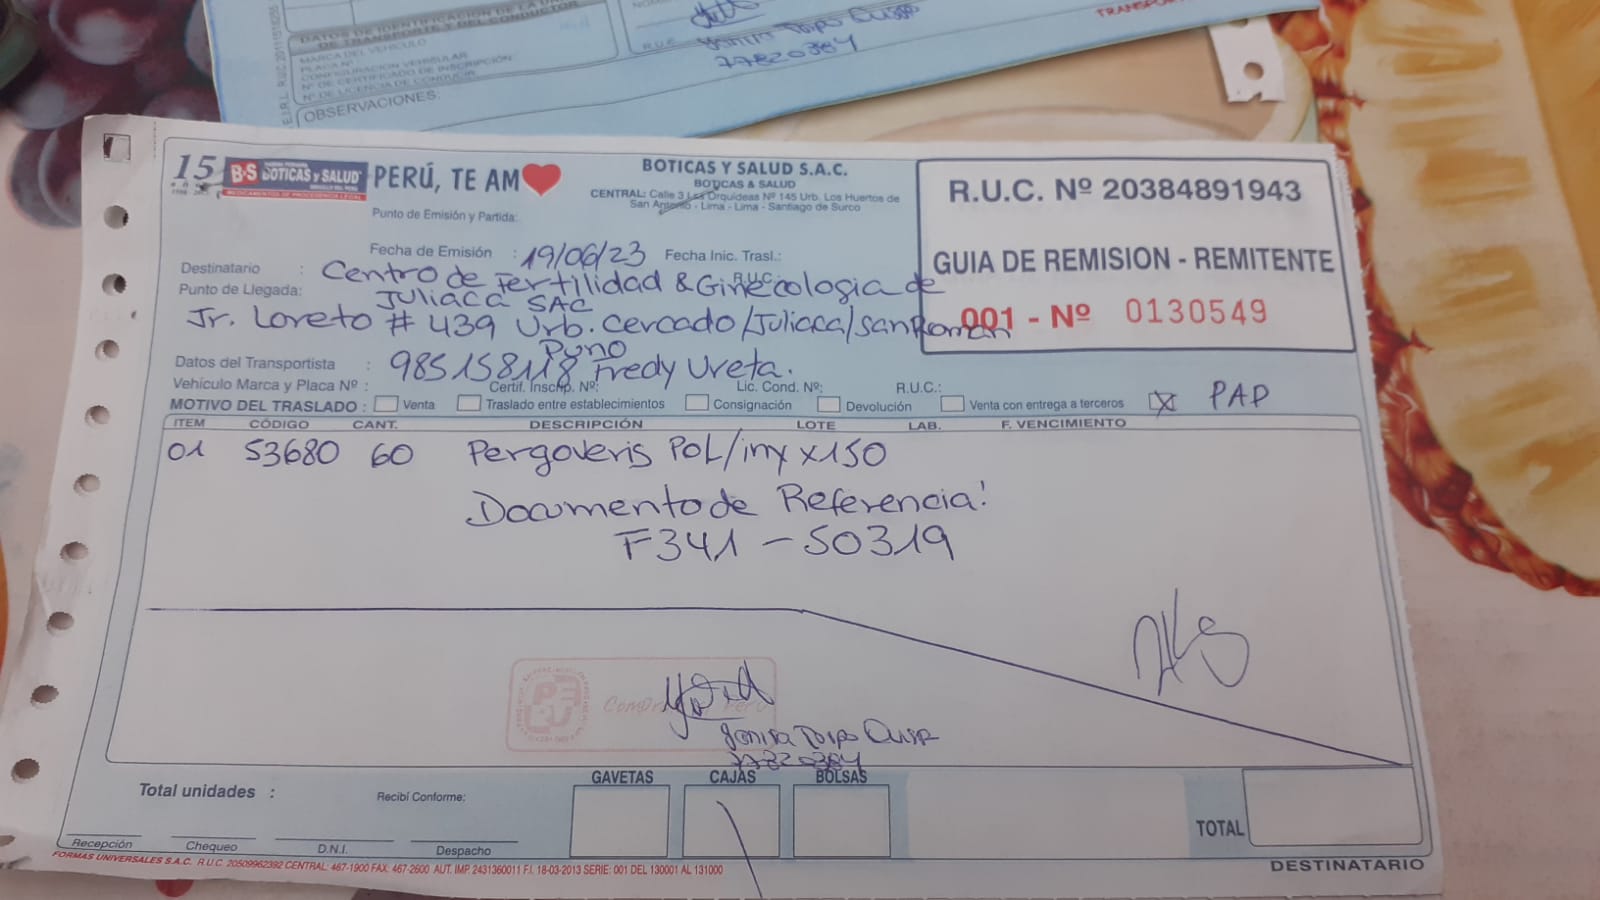 DATOS DE IDENTIFICACION DE LA
DE TRANSPORTE Y DEL CONDUCTOR
MARCA DEL VEHICULO
PLACA Nº
CONFIGURACION VEHICULAR
Nº DE CERTIFICADO DE INSCRIPCIÓN:
Nº DE LICENCIA DE CONDUCIR
OBSERVACIONES:
R.U.C.
77820384
15 B·S BOTICAS y SALUD PERÚ, TE AM
MEDICAMENTOS DE PROCEDENCIA LEGAL
BOTICAS Y SALUD S.A.C.
BOTICAS & SALUD
CENTRAL: Calle 3 Las Orquideas Nº 145 Urb. Los Huertos de
San Antonio - Lima - Lima - Santiago de Surco
R.U.C. Nº 20384891943
GUIA DE REMISION - REMITENTE
001 - Nº 0130549
Punto de Emisión y Partida:
Fecha de Emisión : 19/06/23 Fecha Inic. Trasl.:
Destinatario : Centro de Fertilidad & Ginecologia de R.U.C.:
Juliaca SAC
Punto de Llegada: Jr. Loreto # 439 Urb. Cercado/Juliaca/San Roman
Puno
Datos del Transportista : 985158118 Fredy Ureta.
Vehículo Marca y Placa Nº : Certif. Inscrip. Nº: Lic. Cond. Nº: R.U.C.:
MOTIVO DEL TRASLADO : Venta Traslado entre establecimientos Consignación Devolución Venta con entrega a terceros X PAP
ITEM CÓDIGO CANT. DESCRIPCIÓN LOTE LAB. F. VENCIMIENTO
01 53680 60 Pergoveris POL/iny x150
Documento de Referencia:
F341 - 50319
77820384
GAVETAS CAJAS BOLSAS
Total unidades : Recibí Conforme:
TOTAL
Recepción Chequeo D.N.I. Despacho
DESTINATARIO
FORMAS UNIVERSALES S.A.C. R.U.C. 20509962392 CENTRAL: 467-1900 FAX: 467-2600 AUT. IMP. 2431360011 F.I. 18-03-2013 SERIE: 001 DEL 130001 AL 131000